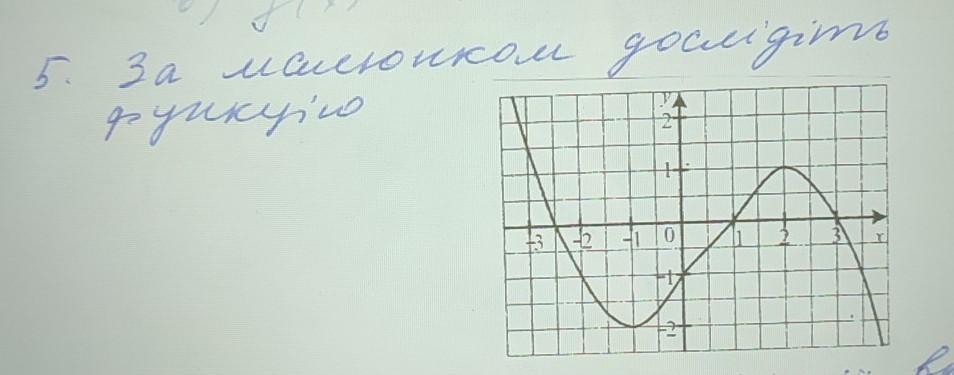 5. За малюнком дослідіть
функцію
y
2
1
-3 -2 -1 0 1 2 3 x
-1
-2